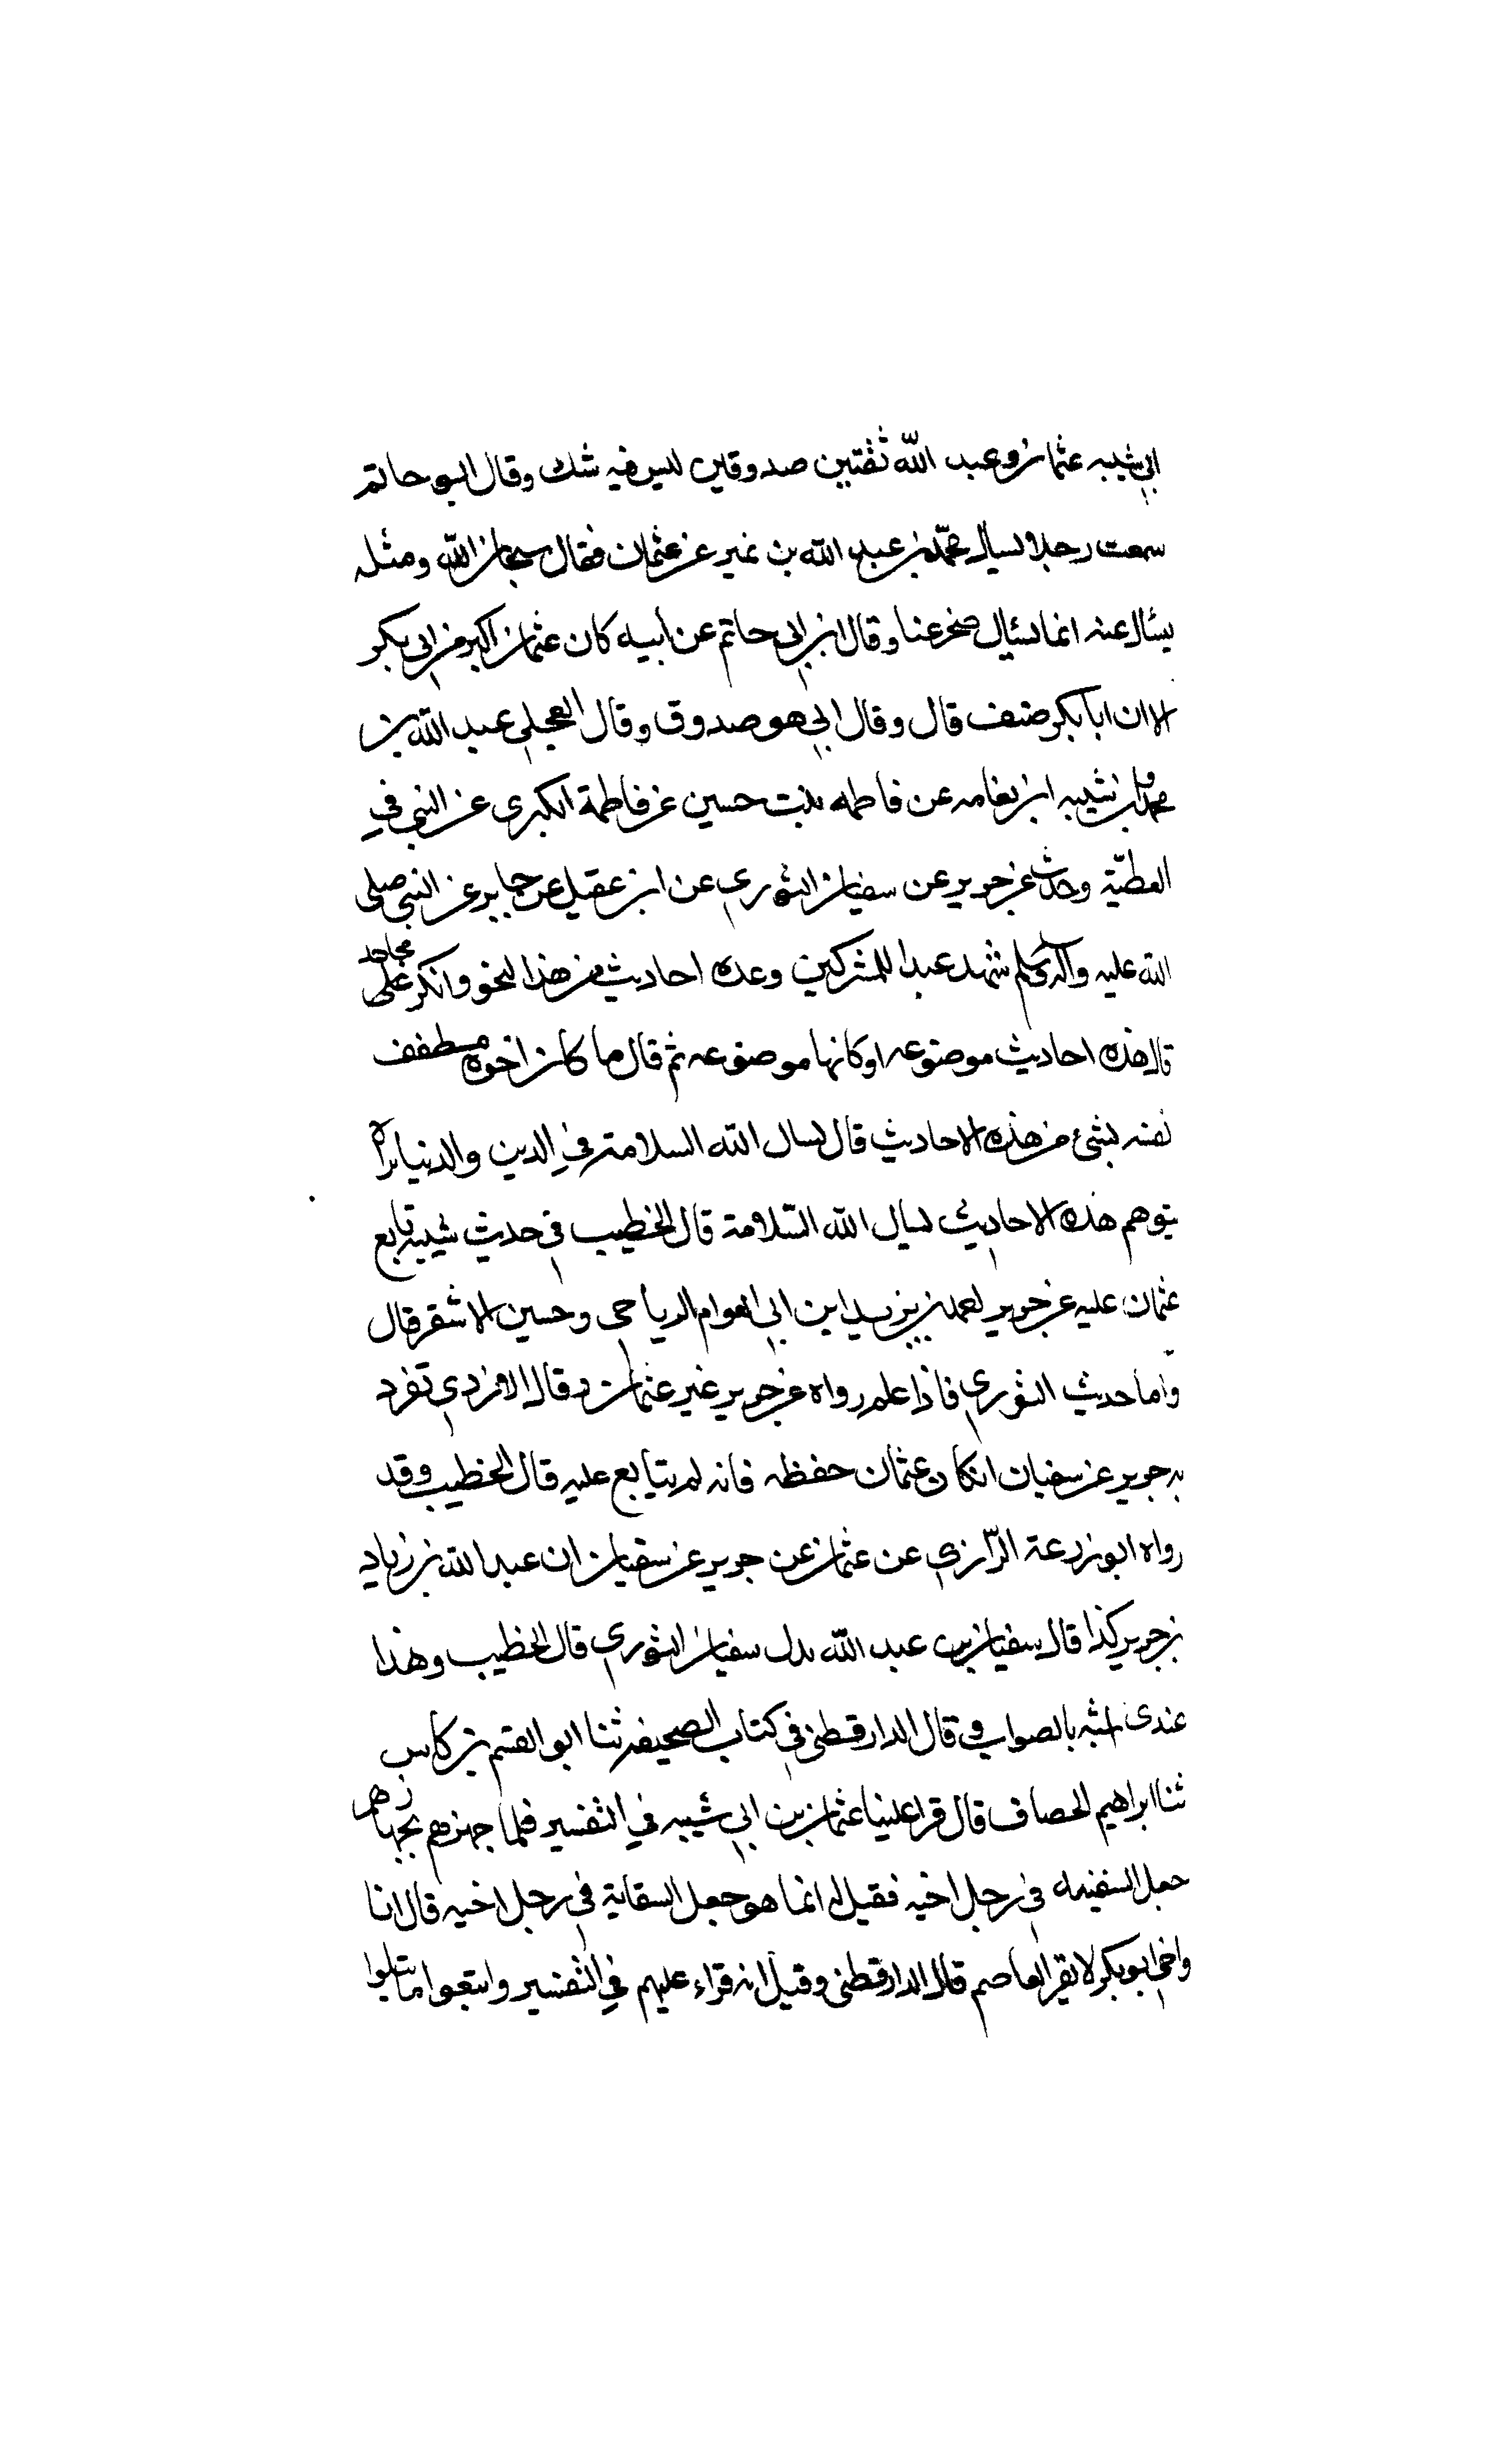 ابى شيبه عثمان وعبد الله ثقتين صدوقين ليس فيه شك وقال ابو حاتم
سمعت رجلا يسال محمّد بن عبد الله بن نمير عن عثمان فقال سبحان الله ومثله
يسئال عنه انما يسئال هو عنا وقال ابن ابى حاتم عن ابيه كان عثمان اكبر من ابى بكر
الا ان ابا بكر ضنف قال وقال ابى هو صدوق وقال العجلى عبد الله بن
محمد بن شيبه ابن نعامه عن فاطمه بنت حسين عن فاطمة الكبرى عن النبى فى
العطيّة وحديث عن جرير عن سفيان الثورى عن ابن عقيل عن جابر عن النبى صلى
الله عليه وآله وسلم شهد عيدا للمشركين وعده احاديث من هذا النحو وانكر على مجاحد
قال هذه احاديث موضوعه او كانها موضوعه ثم قال ما كان اخوه مطفف
نفسه بشئ من هذه الاحاديث قال نسال الله السلامة فى الدين والدنيا نراه
يتوهم هذه الاحاديث نسال الله السّلامة قال الخطيب فى حديث شيبه تابع
عثمان عليه عن جرير احمد بن يزيد ابن ابى العوام الرياحى وحسين الاشقر قال
واما حديث الثورى فاذا علم رواه عن جرير غير عثمان وقال الازدى تفرد
به جرير عن سفيان ان كان عثمان حفظه فانه لم يتابع عليه قال الخطيب وقد
رواه ابو زرعة الرّازى عن عثمان عن جرير عن سفيان ان عبد الله بن زياد
بن جرير كذا قال سفيان بن عبد الله بدل سفيان الثورى قال الخطيب وهذا
عندى اشبه بالصواب وقال الدارقطنى فى كتاب الصحيفه ثنا ابو القسم بن كاس
ثنا ابراهيم الحصاف قال قرا علينا عثمان بن ابى شيبه فى التفسير فلما جهزهم بجهازهم
جعل السفينه فى رجل اخيه فقيل له انما هو جعل السقاية فى رحل اخيه قال انا
واخى ابو بكر لا نقرا لعاصم قال الدارقطنى وقيل انه قراء عليهم فى التفسير واتبعوا ما تتلوا